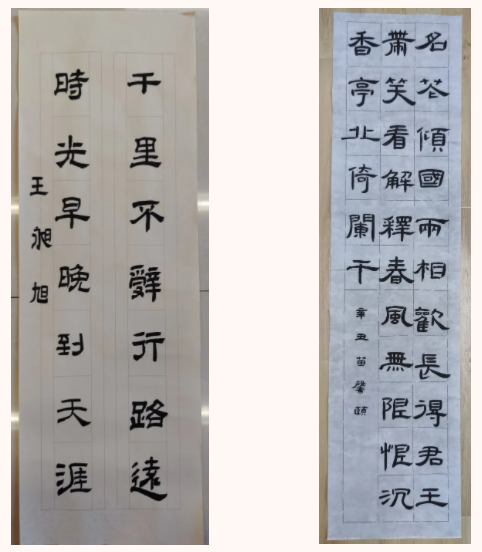 千里不辭行路遠
時光早晚到天涯
王昶旭
名花傾國兩相歡長得君王
帶笑看解釋春風無限恨沉
香亭北倚闌干
辛丑苗頤